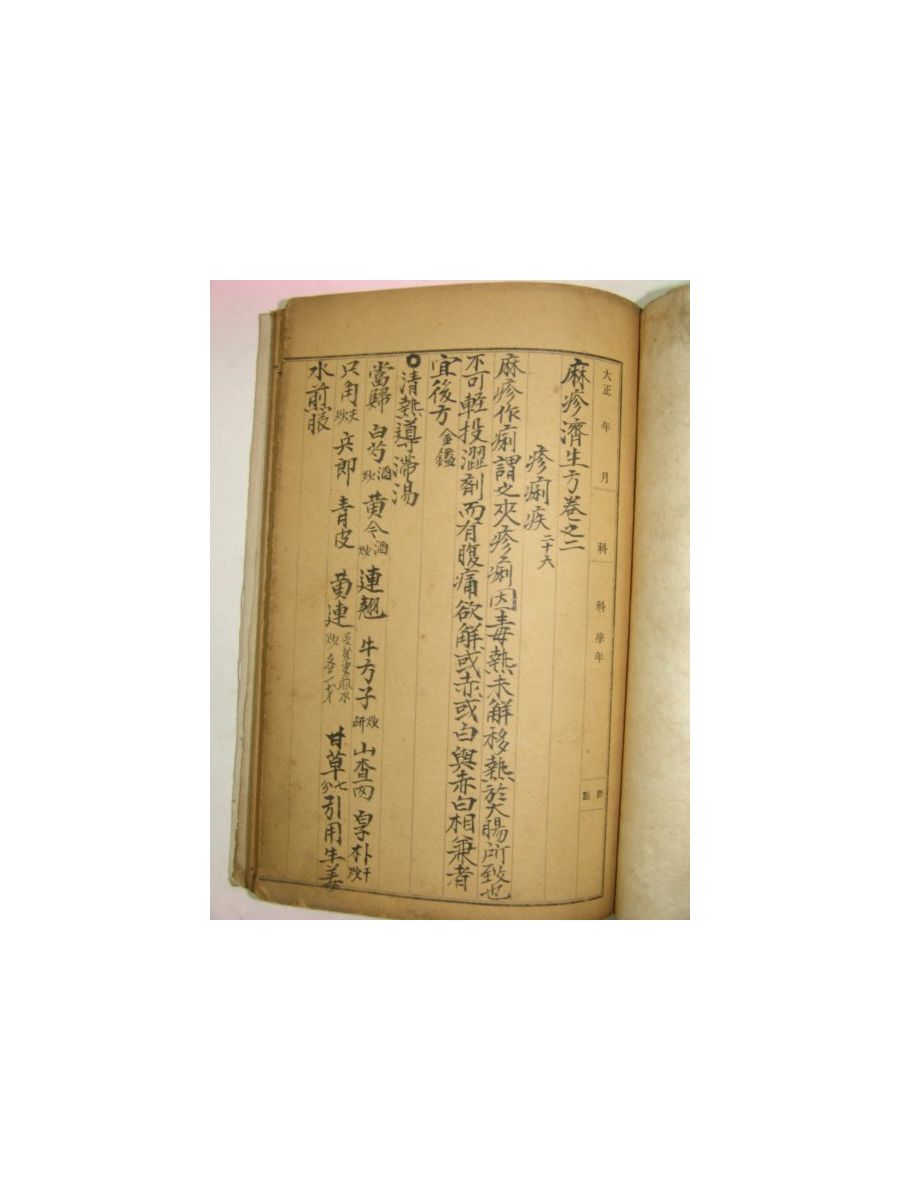 大正 年 月 科 科學年 評點
麻疹濟生方卷之二
疹痢疾 二十六
麻疹作痢謂之夾疹痢因毒熱未解移熱於大腸所致也
不可軽投澀劑而有腹痛欲解或赤或白與赤白相兼者
宜後方 金鑑
清熱導滯湯
當歸 白芍 酒炒 黃令 酒炒 連翹 牛方子 炒研 山查肉 厚朴 干炒
只角 夫炒 兵郎 青皮 黃連 炒 甘草 七分 引用生姜
水煎服